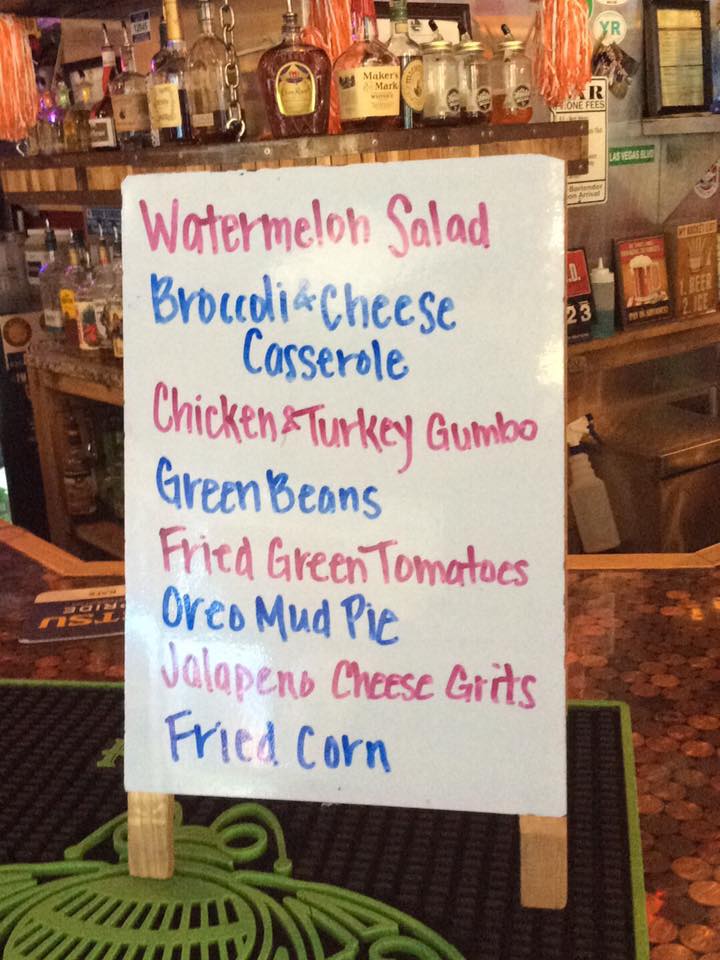 YR
Maker's
Mark
BAR
PHONE FEES
LAS VEGAS BLVD
Bartender
on Arrival
Watermelon Salad
Broccoli & Cheese
Casserole
Chicken & Turkey Gumbo
Green Beans
Fried Green Tomatoes
Oreo Mud Pie
Jalapeno Cheese Grits
Fried Corn
1. BEER
2. ICE
PAY IN ADVANCE
23
TSU
PRIDE